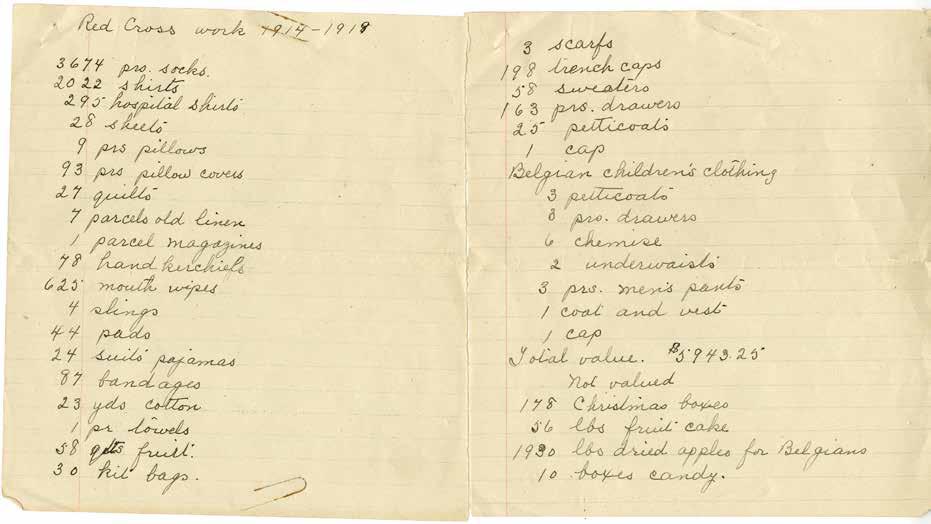 Red Cross work 1914-1918
3674 prs. socks.
2022 shirts
295 hospital shirts
28 sheets
9 prs pillows
93 prs pillow covers
27 quilts
7 parcels old linen
1 parcel magazines
48 handkerchiefs
625 mouth wipes
4 slings
44 pads
24 suits pajamas
87 bandages
23 yds cotton
1 pr towels
58 qts fruit.
30 kit bags.
3 scarfs
198 trench caps
58 sweaters
163 prs. drawers
25 petticoats
1 cap
Belgian children's clothing
3 petticoats
3 prs. drawers
6 chemise
2 underwaists
3 prs. men's pants
1 coat and vest
1 cap
Total value. $5943.25
Not valued
178 Christmas boxes
56 lbs fruit cake
1930 lbs dried apples for Belgians
10 boxes candy.